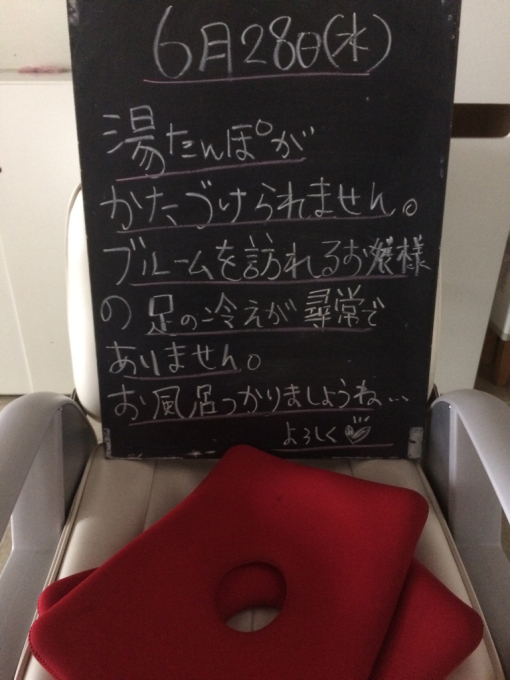 6月28日(水)
湯たんぽが
かたづけられません。
ブルームを訪れるお嬢様
の足の冷えが尋常で
ありません。
お風呂つかりましょうね…
よろしく